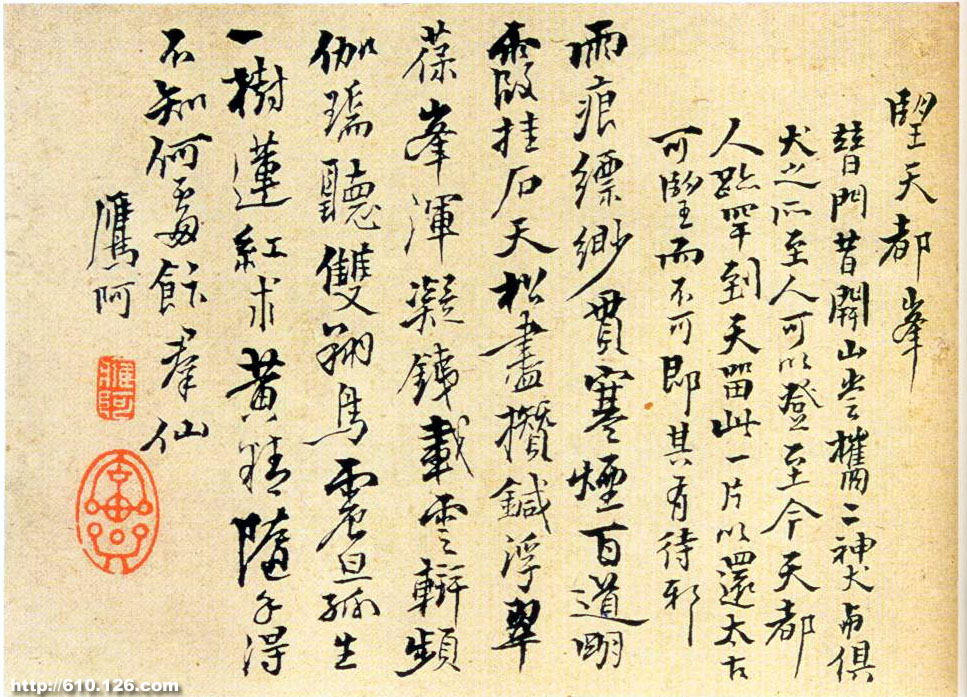 望天都峯
普門昔開山嘗攜二神犬与俱
犬之所至人可以登至今天都
人跡罕到天留此一片以還太古
可望而不可即其有待邪
雨痕縹緲貫寒煙百道明
霞挂石天松盡攢鍼浮翠
葆峯渾凝鐵載雲輧頻
伽瑞聽雙翔鳥震旦孤生
一樹蓮紅朮黃精隨手得
不知何處飰羣仙
鷹阿
http://610.126.com